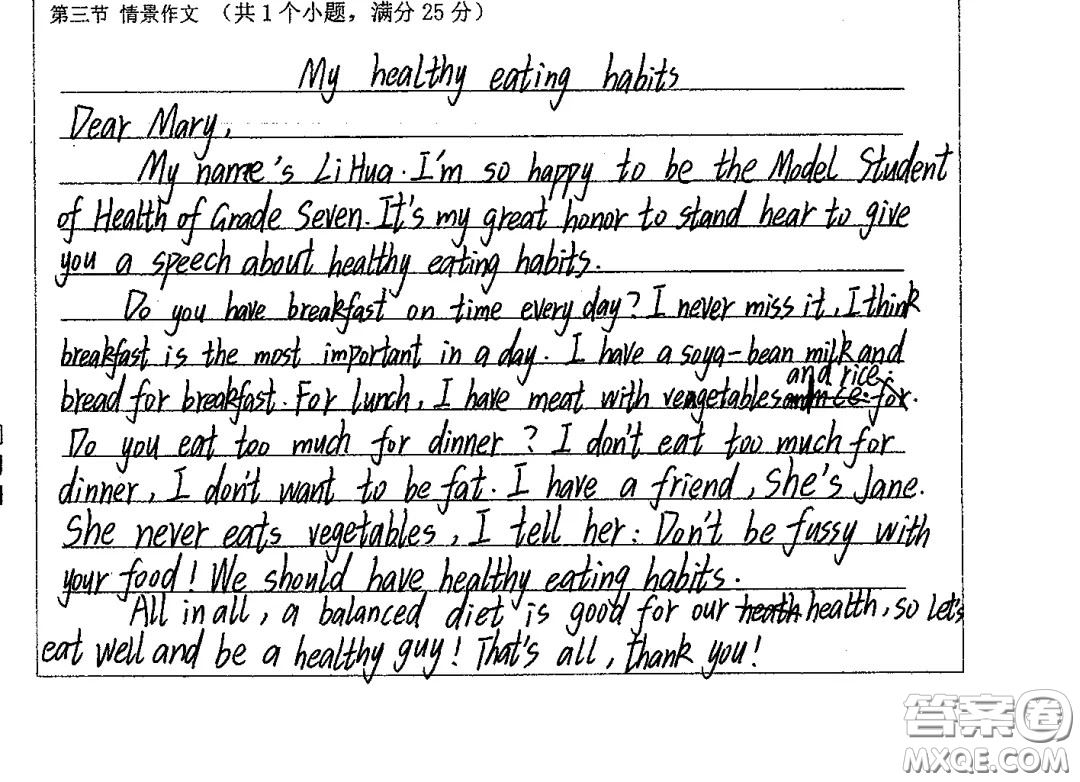 第三节 情景作文 （共1个小题，满分25分）
My healthy eating habits
Dear Mary,
My name's Li Hua. I'm so happy to be the Model Student
of Health of Grade Seven. It's my great honor to stand hear to give
you a speech about healthy eating habits.
Do you have breakfast on time every day? I never miss it, I think
breakfast is the most important in a day. I have a soya-bean milk and
and rice.
bread for breakfast. For lunch, I have meat with vengetables for.
Do you eat too much for dinner? I don't eat too much for
dinner, I don't want to be fat. I have a friend, She's Jane.
She never eats vegetables, I tell her: Don't be fussy with
your food! We should have healthy eating habits.
All in all, a balanced diet is good for our heath health, so let's
eat well and be a healthy guy! That's all, thank you!
答案圈
MXQE.COM